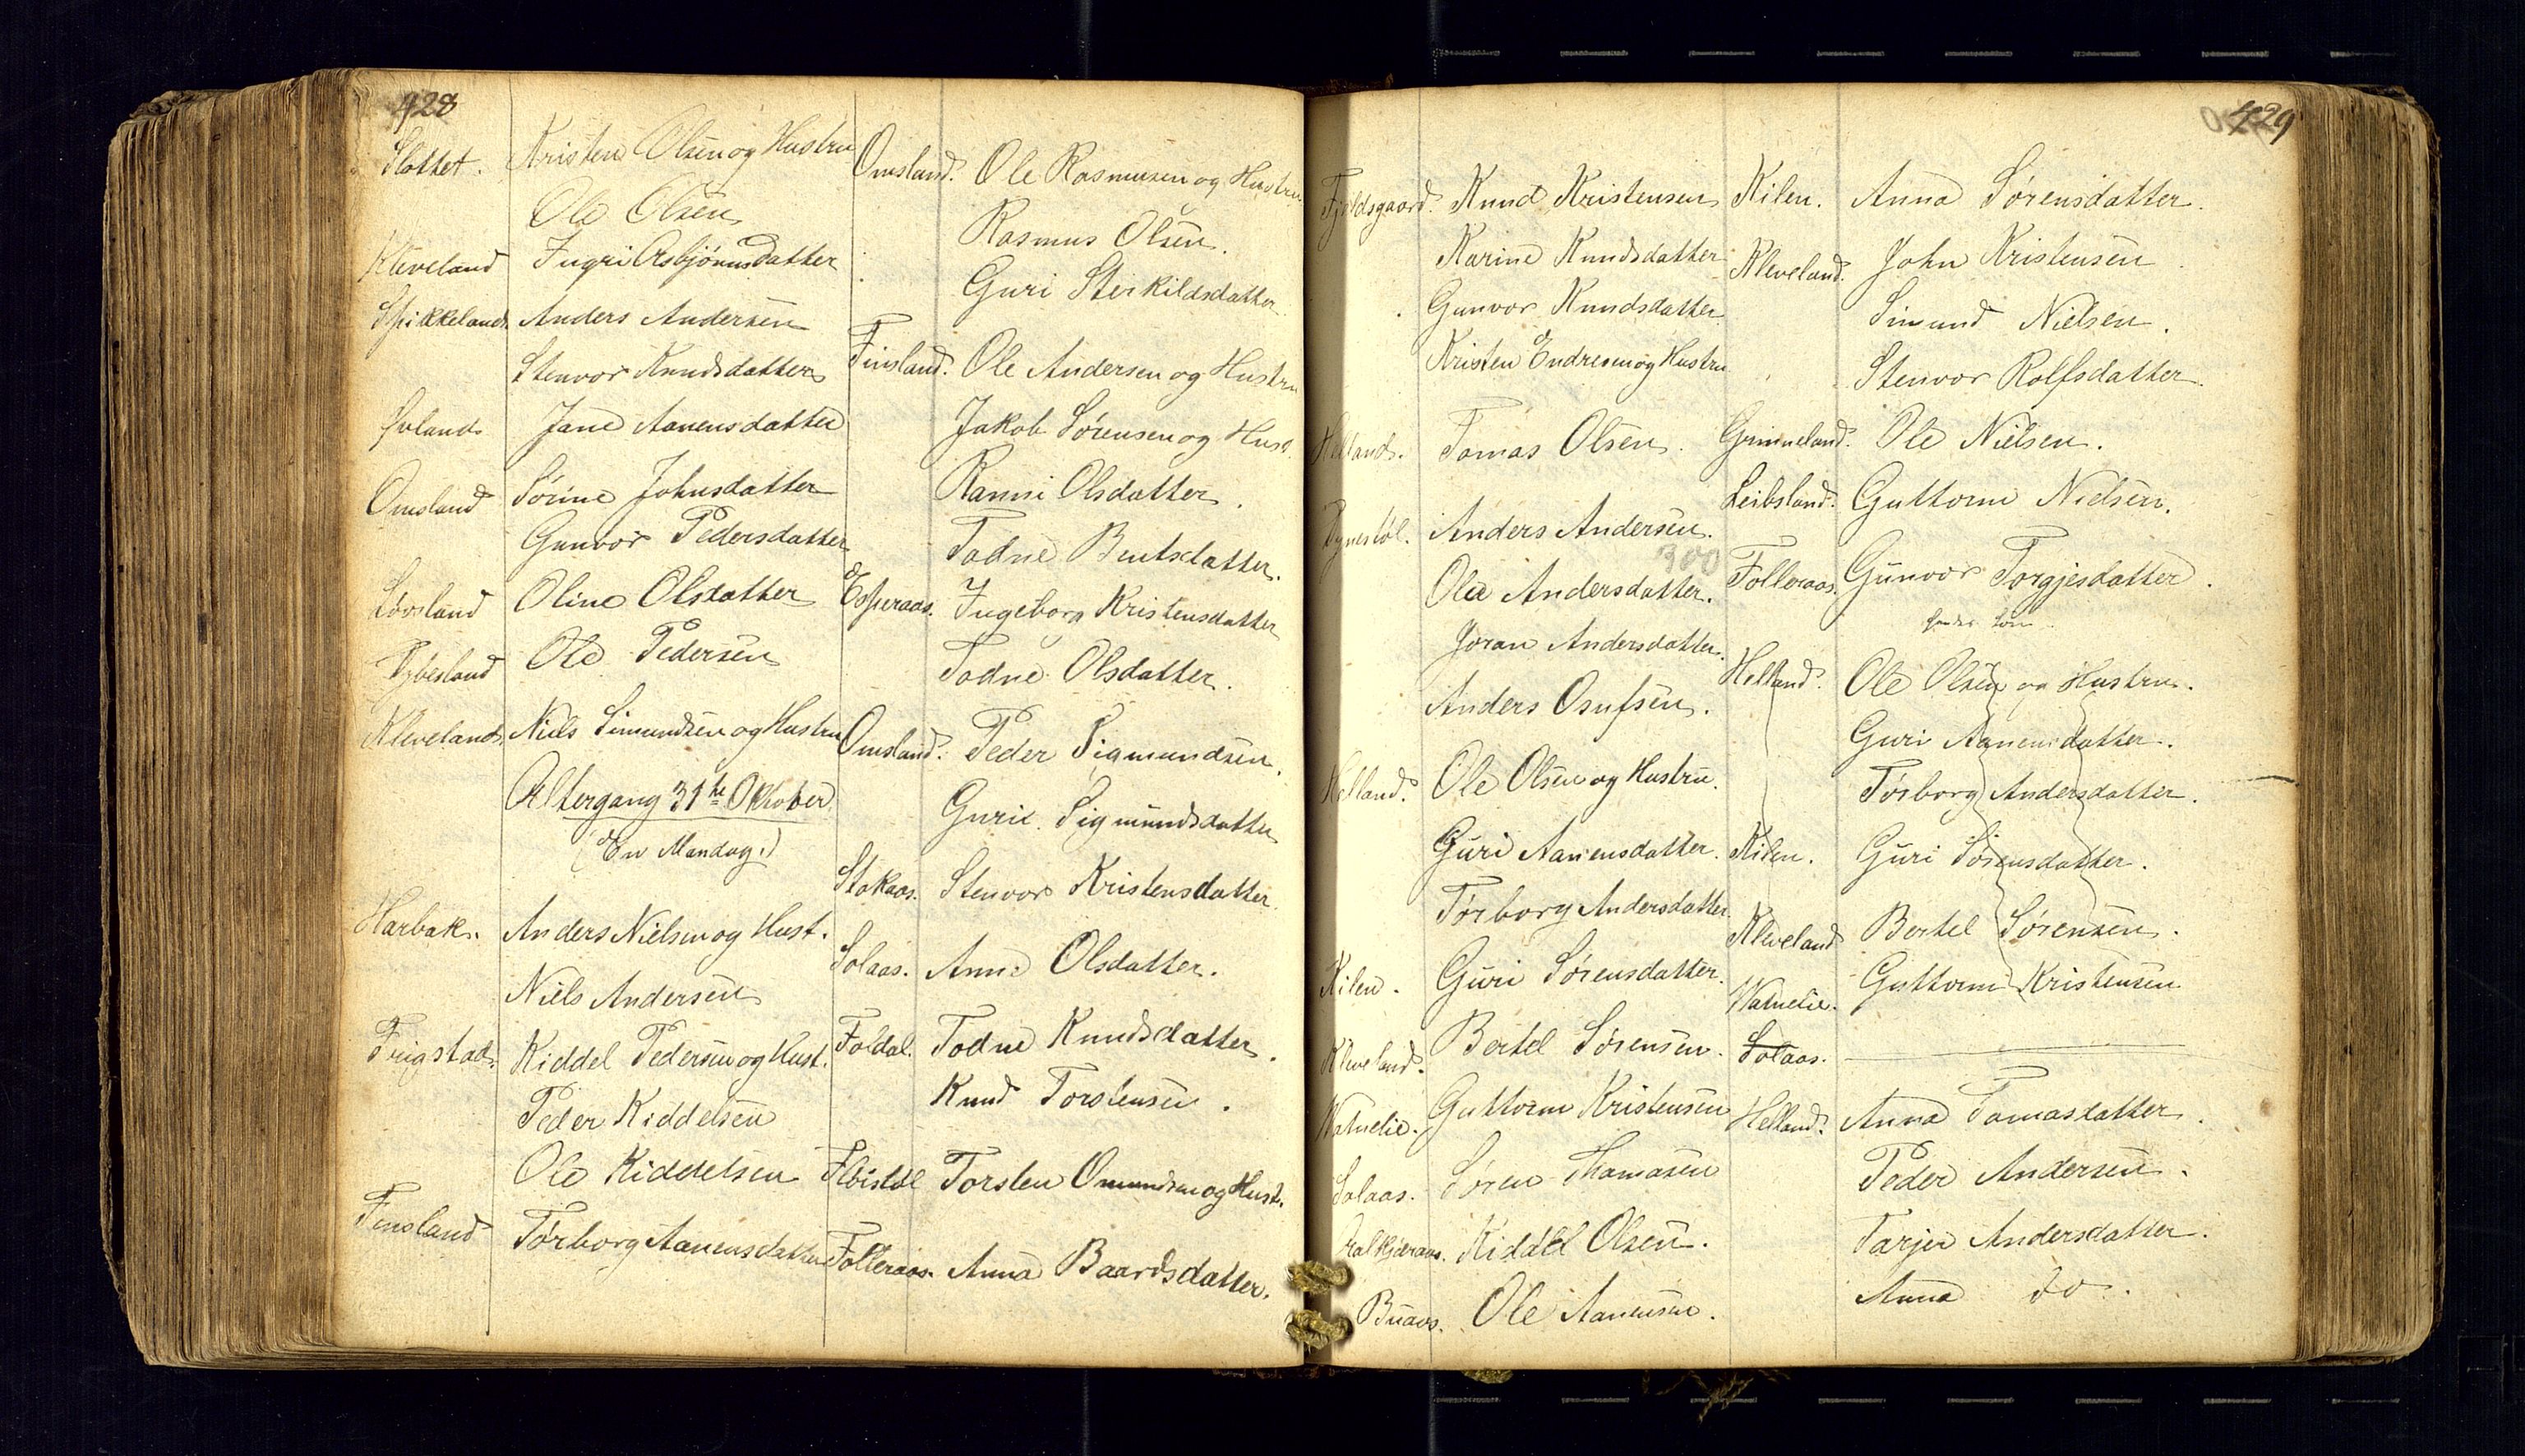 428
Slottet. Kristen Olsen og Hustru
Ole Olsen
Kleveland Ingri Asbjørnsdatter
Spikkeland Anders Andersen
Stenvor Knudsdatter
Øvland Jane Aanensdatter
Omsland Sørine Johnsdatter
Gunvor Pedersdatter
Løvsland Oline Olsdatter
Dybesland Ole Pedersen
Kleveland Niels Simundsen og Hustru
Altergang 31te Oktober
(En Mandag.)
Harbak. Anders Nielsen og Hust.
Niels Andersen
Frigstad. Kiddel Pedersen og Hust.
Peder Kiddelsen
Ole Kiddelsen
Finsland Tørborg Aanensdatter
Omsland. Ole Rasmusen og Hustru
Rasmus Olsen.
Guri Sterkildsdatter
Finsland. Ole Andersen og Hustru
Jakob Sørensen og Hust.
Ranni Olsdatter.
Todne Bentsdatter.
Esperaas. Ingeborg Kristensdatter
Todne Olsdatter.
Omsland. Peder Sigmundsen.
Gurie Sigmundsdatter
Stokaas. Stenvor Kristensdatter
Solaas. Anne Olsdatter.
Foldal. Todne Knudsdatter.
Knud Torstensen.
Torsten Omundsen og Hust.
Folleraas. Anna Baardsdatter.
429
Fjeldsgaard. Knud Kristensen
Karine Knudsdatter
Gunvor Knudsdatter
Kristen Endresen og Hustru
Helland. Tomas Olsen.
Dynestøl. Anders Andersen.
300
Olea Andersdatter.
Joran Andersdatter.
Anders Osufsen.
Helland. Ole Olsen og Hustru.
Guri Aanensdatter.
Tørborg Andersdatter
Kilen. Guri Sørensdatter.
Kleveland. Bertel Sørensen.
Vatnelie. Guttorm Kristensen
Solaas. Søren Thomasen
Kiddel Olsen.
Buaas. Ole Aanensen.
Kilen. Anna Sørensdatter.
Kleveland. John Kristensen
Simund Nielsen.
Stenvor Rolfsdatter.
Grinneland. Ole Nielsen.
Leibsland. Guttorm Nielsen.
Folleraas. Gunvor Torgjesdatter.
Helland. Ole Olsen og Hustru.
Guri Aanensdatter.
Tørborg Andersdatter.
Kilen. Guri Sørensdatter.
Kleveland Bertel Sørensen.
Vatnelie. Guttorm Kristensen
Solaas.
Helland. Anna Tomasdatter.
Peder Andersen.
Tarjer Andersdatter.
Anna do.